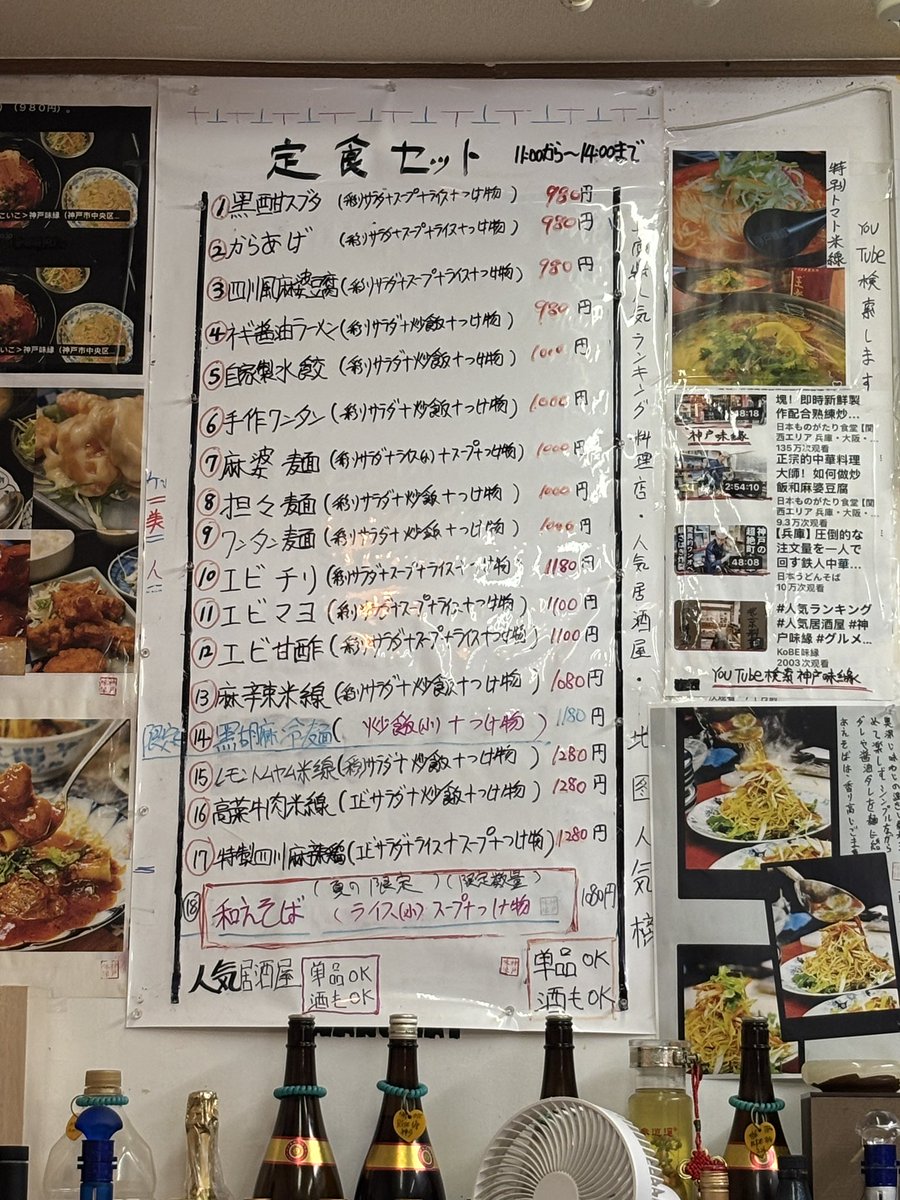 定食セット 11:00から〜14:00まで
①黒酢スブタ (彩りサラダ+スープ+ライス+つけ物) 980円
②からあげ (彩りサラダ+スープ+ライス+つけ物) 980円
③四川風麻婆豆腐(彩りサラダ+スープ+ライス+つけ物) 980円
④ネギ醤油ラーメン(彩りサラダ+炒飯+つけ物) 980円
⑤自家製水餃 (彩りサラダ+炒飯+つけ物) 1000円
⑥手作ワンタン (彩りサラダ+炒飯+つけ物) 1000円
⑦麻婆麺 (彩りサラダ+ライス(小)+スープ+つけ物) 1000円
⑧担々麺 (彩りサラダ+炒飯+つけ物) 1000円
⑨ワンタン麺 (彩りサラダ+炒飯+つけ物) 1000円
⑩エビチリ (彩りサラダ+スープ+ライス+つけ物) 1180円
⑪エビマヨ (彩りサラダ+スープ+ライス+つけ物) 1100円
⑫エビ甘酢 (彩りサラダ+スープ+ライス+つけ物) 1100円
⑬麻辛辣米線(彩りサラダ+炒飯+つけ物) 1080円
⑭黒胡麻冷麺( 炒飯(小)+つけ物 ) 1180円
⑮レモントムヤム米線(彩りサラダ+炒飯+つけ物) 1280円
⑯高菜牛肉米線(エビサラダ+炒飯+つけ物) 1280円
⑰特製四川麻辣鶏(エビサラダ+ライス+スープ+つけ物) 1280円
(夏の限定)(限定数量)
⑱和えそば (ライス(小)スープ+つけ物 1080円
人気居酒屋
単品OK
酒もOK
単品OK
酒もOK
人気ランキング料理店・人気居酒屋・
人気榜
美人
(980円)。
こいこ>神戸味縁(神戸市中央区...
こいこ>神戸味縁(神戸市中央区...
特別トマト米線
YouTube検索します
48:18
神戸味縁
塊!即時新鮮製
作配合熟練炒...
日本ものがたり食堂【関
西エリア 兵庫・大阪・...
135万次观看
2:54:10
正宗的中華料理
大師!如何做炒
飯和麻婆豆腐
日本ものがたり食堂【関
西エリア 兵庫・大阪・...
9.3万次观看
48:08
【兵庫】圧倒的な
注文量を一人で
回す鉄人中華...
日本うどんそば
10万次观看
#人気ランキング
#人気居酒屋 #神
戸味縁 #グルメ...
KoBE味縁
2003次观看
YouTube検索神戸味縁